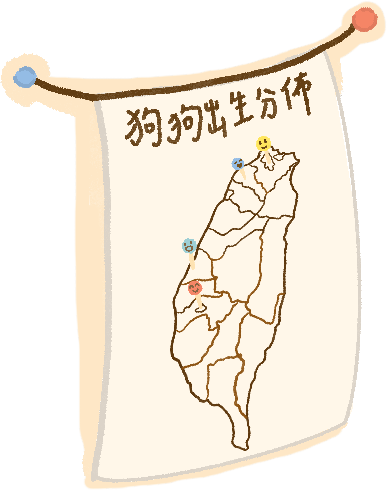 狗狗出生分佈